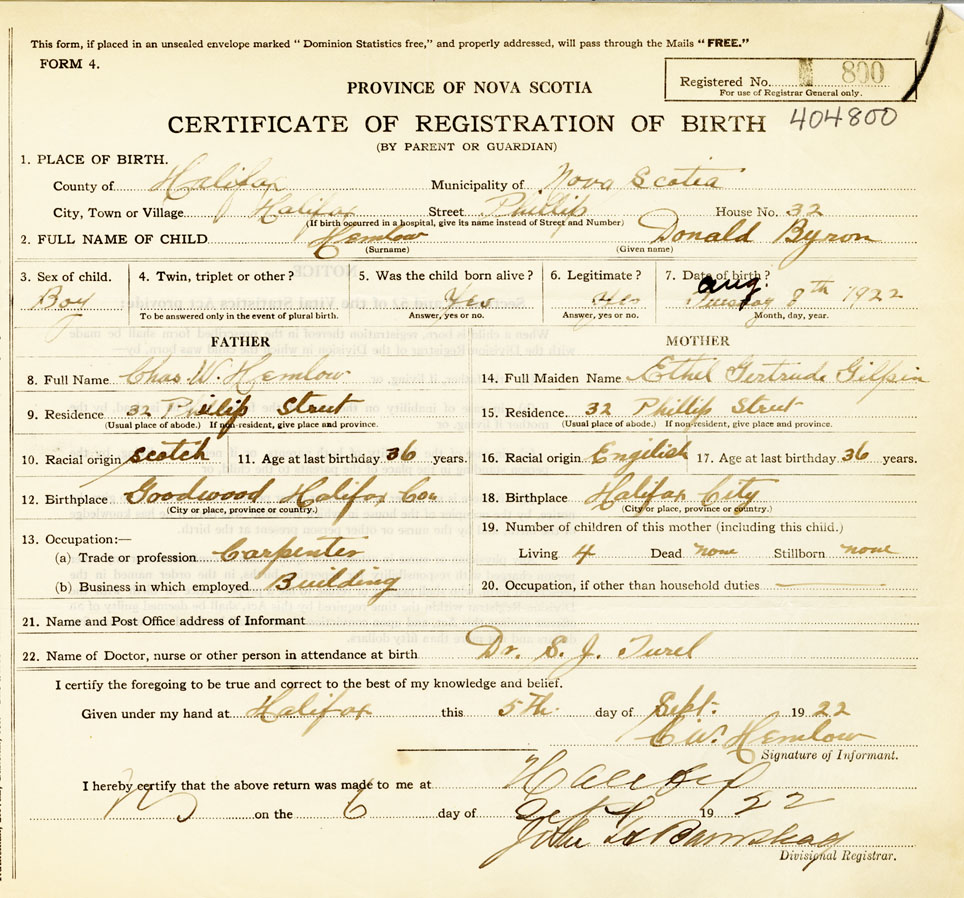 This form, if placed in an unsealed envelope marked "Dominion Statistics free," and properly addressed, will pass through the Mails "FREE."
FORM 4.
PROVINCE OF NOVA SCOTIA
Registered No. 800
For use of Registrar General only.
CERTIFICATE OF REGISTRATION OF BIRTH 404800
(BY PARENT OR GUARDIAN)
1. PLACE OF BIRTH.
County of Halifax Municipality of Nova Scotia
City, Town or Village Halifax Street Phillip House No. 32
(If birth occurred in a hospital, give its name instead of Street and Number)
2. FULL NAME OF CHILD Hemlow Donald Byron
(Surname) (Given name)
3. Sex of child. 4. Twin, triplet or other? 5. Was the child born alive? 6. Legitimate? 7. Date of birth?
Aug.
Boy Yes Yes Tuesday 8th 1922
To be answered only in the event of plural birth. Answer, yes or no. Answer, yes or no. Month, day, year.
FATHER MOTHER
8. Full Name Chas W. Hemlow 14. Full Maiden Name Ethel Gertrude Gilpin
9. Residence 32 Phillip Street 15. Residence. 32 Phillip Street
(Usual place of abode.) If non-resident, give place and province. (Usual place of abode.) If non-resident, give place and province.
10. Racial origin Scotch 11. Age at last birthday 36 years. 16. Racial origin Engilish 17. Age at last birthday 36 years.
12. Birthplace Goodwood Halifax Cou 18. Birthplace Halifax City
(City or place, province or country.) (City or place, province or country.)
19. Number of children of this mother (including this child.)
13. Occupation:—
(a) Trade or profession Carpenter Living 4 Dead none Stillborn none
(b) Business in which employed Building 20. Occupation, if other than household duties —
21. Name and Post Office address of Informant
22. Name of Doctor, nurse or other person in attendance at birth Dr. S. J. Turel
I certify the foregoing to be true and correct to the best of my knowledge and belief.
Given under my hand at Halifax this 5th. day of Sept. 1922
C W. Hemlow
Signature of Informant.
I hereby certify that the above return was made to me at Halifax
on the 6 day of Sept 1922
John
Divisional Registrar.